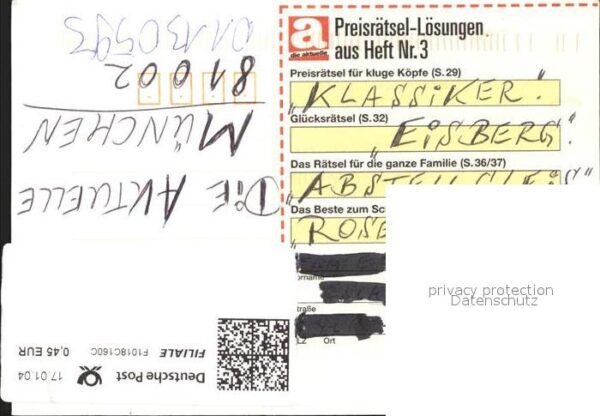 a
die aktuelle
Preisrätsel-Lösungen
aus Heft Nr. 3
Preisrätsel für kluge Köpfe (S.29)
„KLASSIKER"
Glücksrätsel (S.32)
„EISBERG"
Das Rätsel für die ganze Familie (S.36/37)
„ABSTELLGLEIS"
Das Beste zum Sc
„ROSE
DIE AKTUELLE
MÜNCHEN
81002
Deutsche Post
17.01.04
FILIALE F1018C160C 0,45 EUR
orname
traße
LZ Ort
privacy protection
Datenschutz